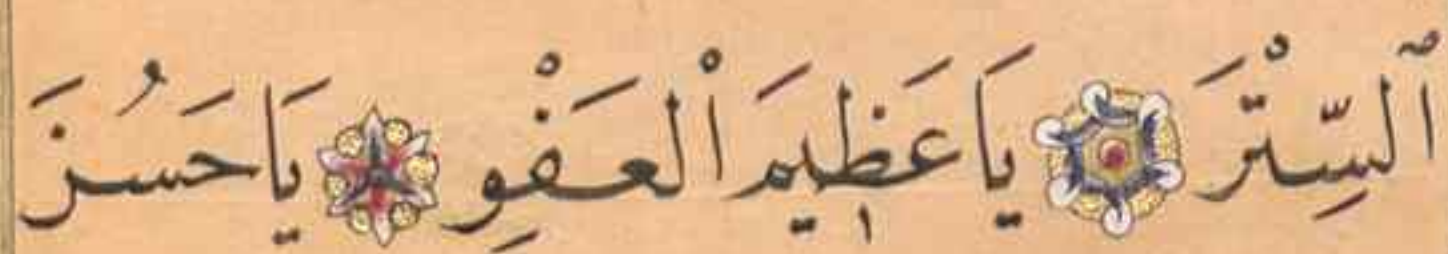 ٱلسِّتْرَ يَا عَظِيمَ ٱلْعَفْوِ يَا حَسُنَ